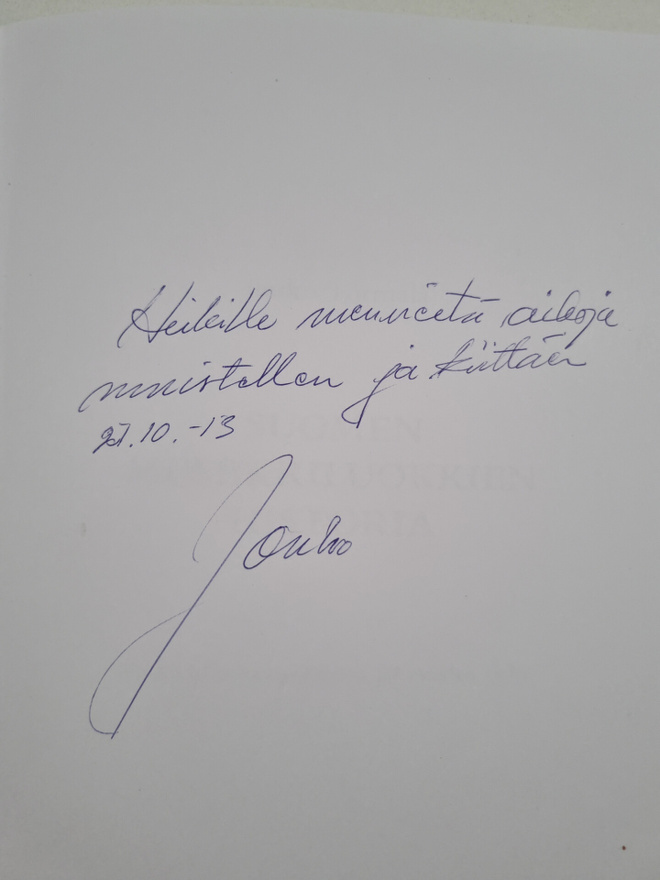 Heikille menneitä aikoja
muistellen ja kiittäen
27.10.-13
Jouko